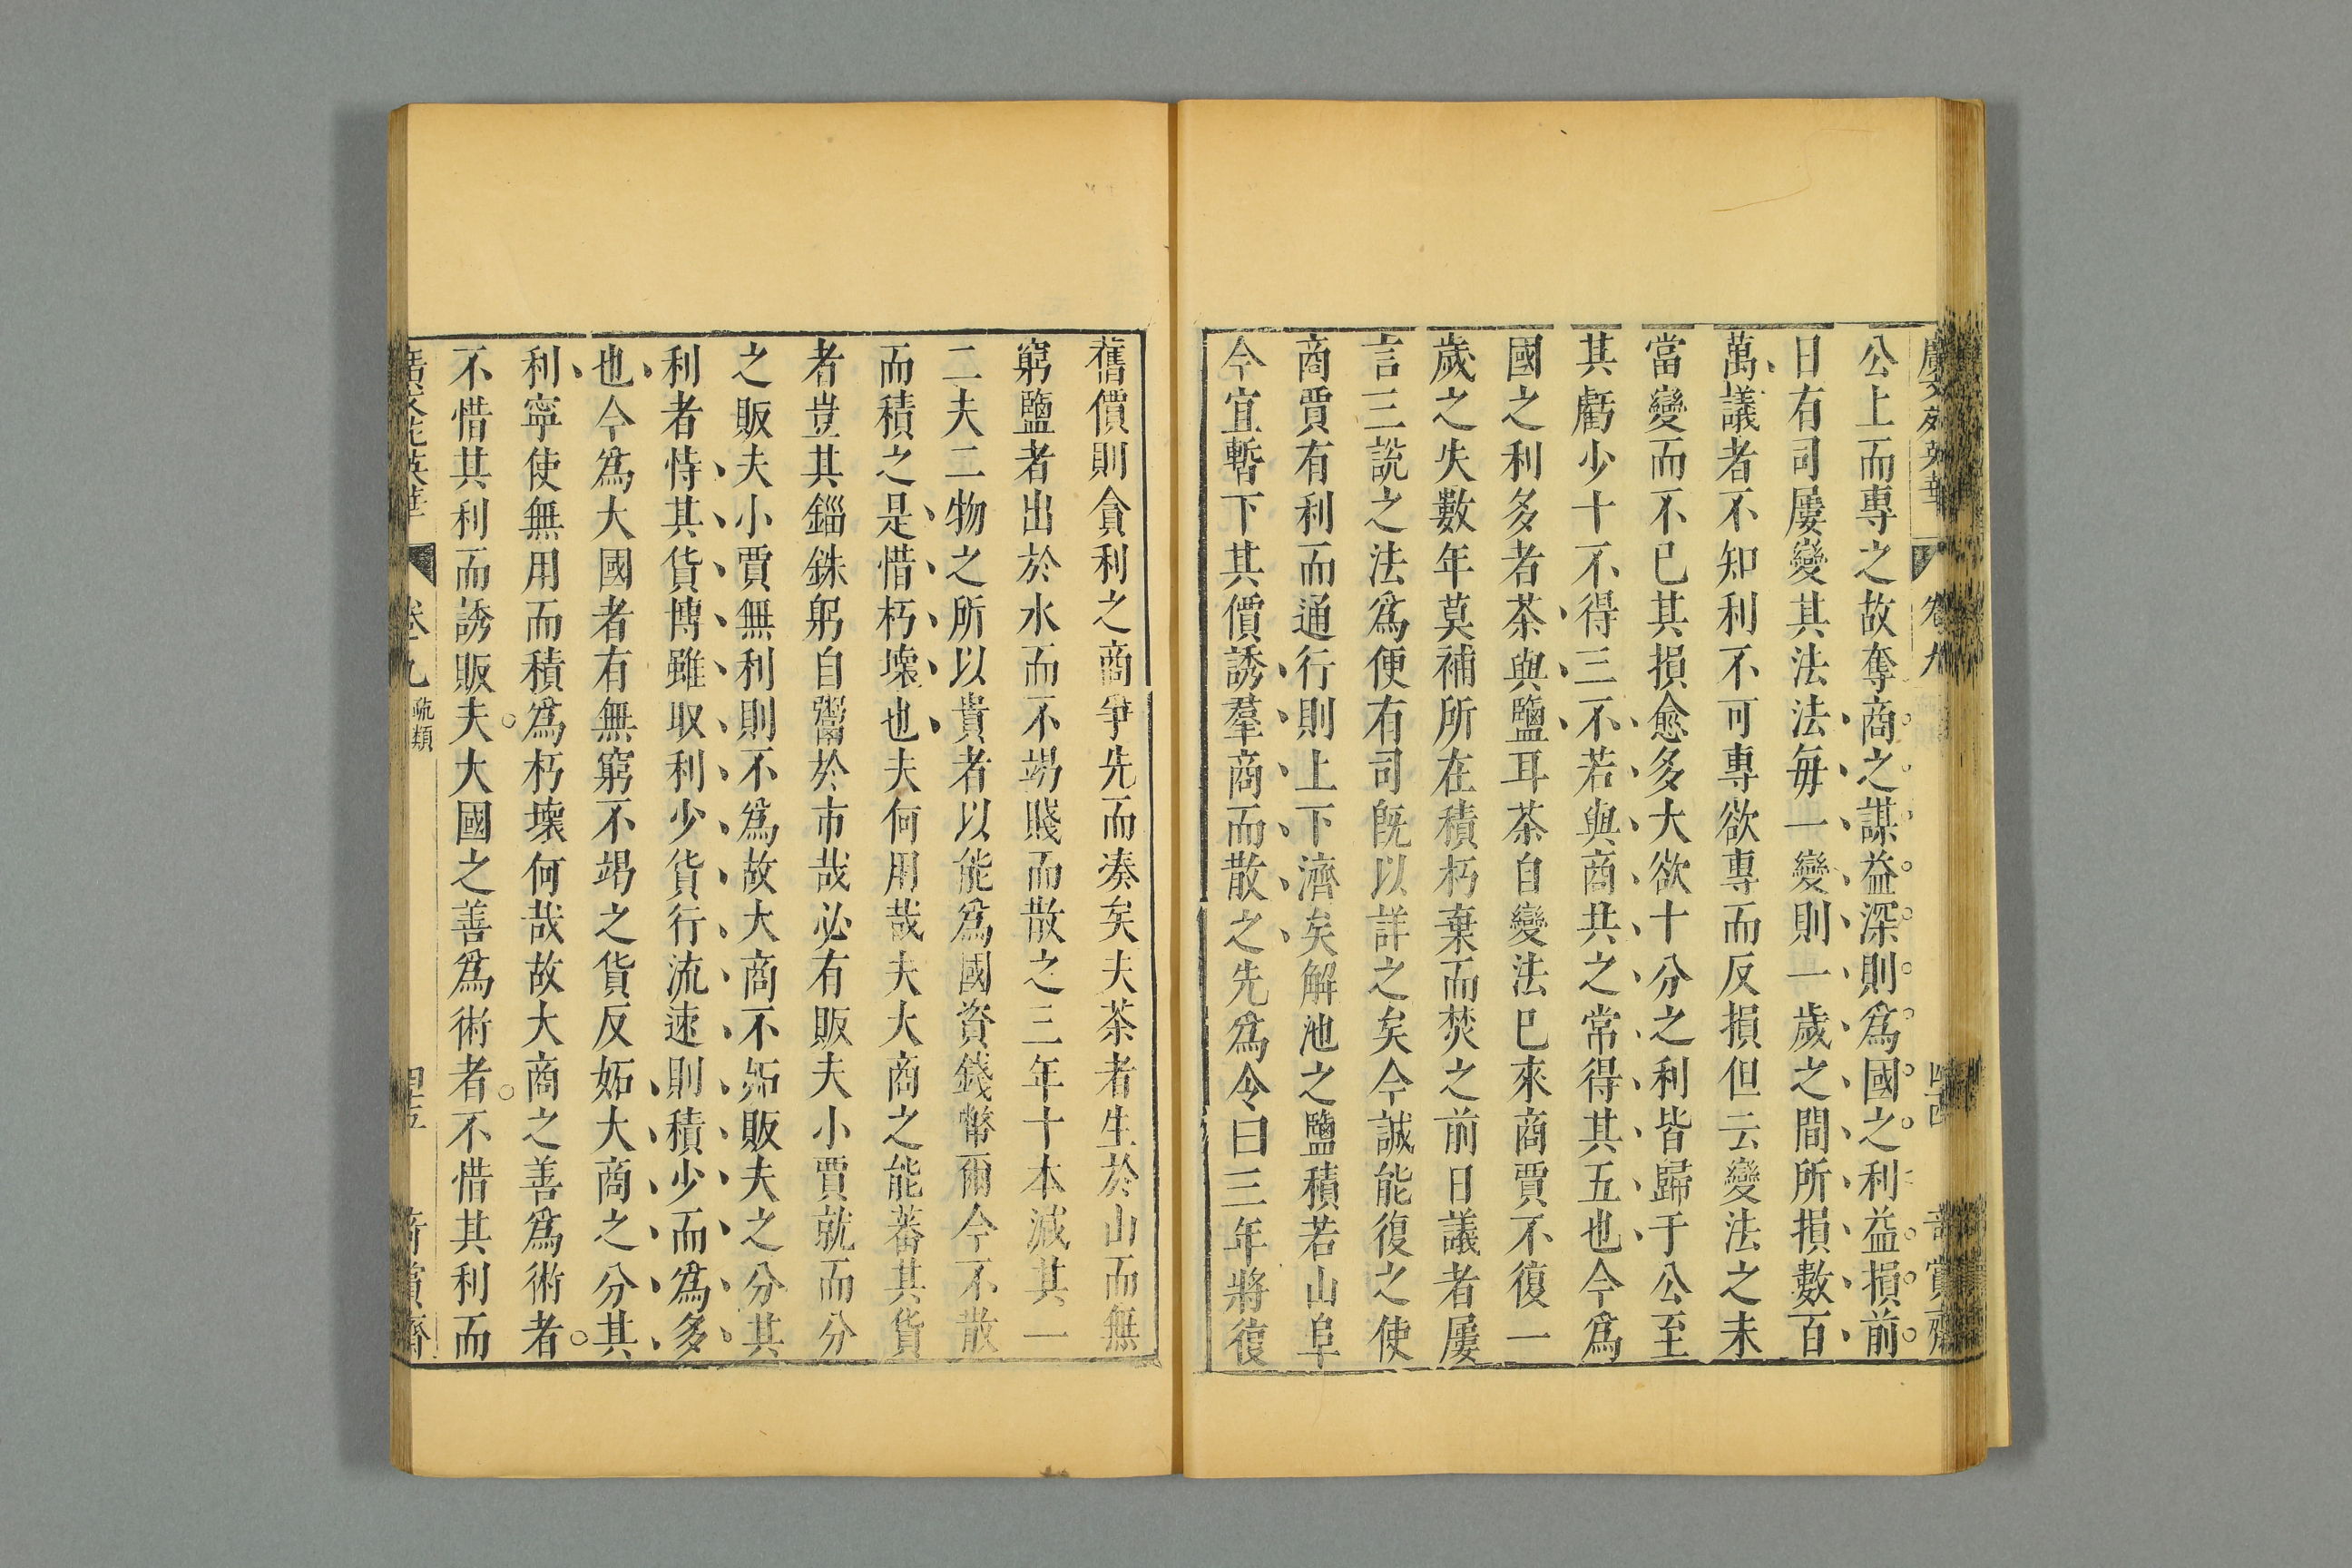 廣文苑英華 卷九 四十四 奇賞齋
公上而專之故奪商之謀益深則為國之利益損前
日有司屢變其法法每一變則一歲之間所損數百
萬議者不知利不可專欲專而反損但云變法之未
當變而不已其損愈多大欲十分之利皆歸于公至
其虧少十不得三不若與商共之常得其五也今為
國之利多者茶與鹽耳茶自變法已來商賈不復一
歲之失數年莫補所在積朽棄而焚之前日議者屢
言三說之法為便有司既以詳之矣今誠能復之使
商賈有利而通行則上下濟矣解池之鹽積若山阜
今宜暫下其價誘羣商而散之先為令曰三年將復
舊價則貪利之商爭先而凑矣夫茶者生於山而無
窮鹽者出於水而不竭賤而散之三年十本減其一
二夫二物之所以貴者以能為國資錢幣爾今不散
而積之是惜朽壞也夫何用哉夫大商之能蕃其貨
者豈其錙銖躬自鬻於市哉必有販夫小賈就而分
之販夫小賈無利則不為故大商不妬販夫之分其
利者恃其貨博雖取利少貨行流速則積少而為多
也今為大國者有無窮不竭之貨反妬大商之分其
利寧使無用而積為朽壞何哉故大商之善為術者
不惜其利而誘販夫大國之善為術者不惜其利而
廣文苑英華 卷九 疏類 四十五 奇賞齋